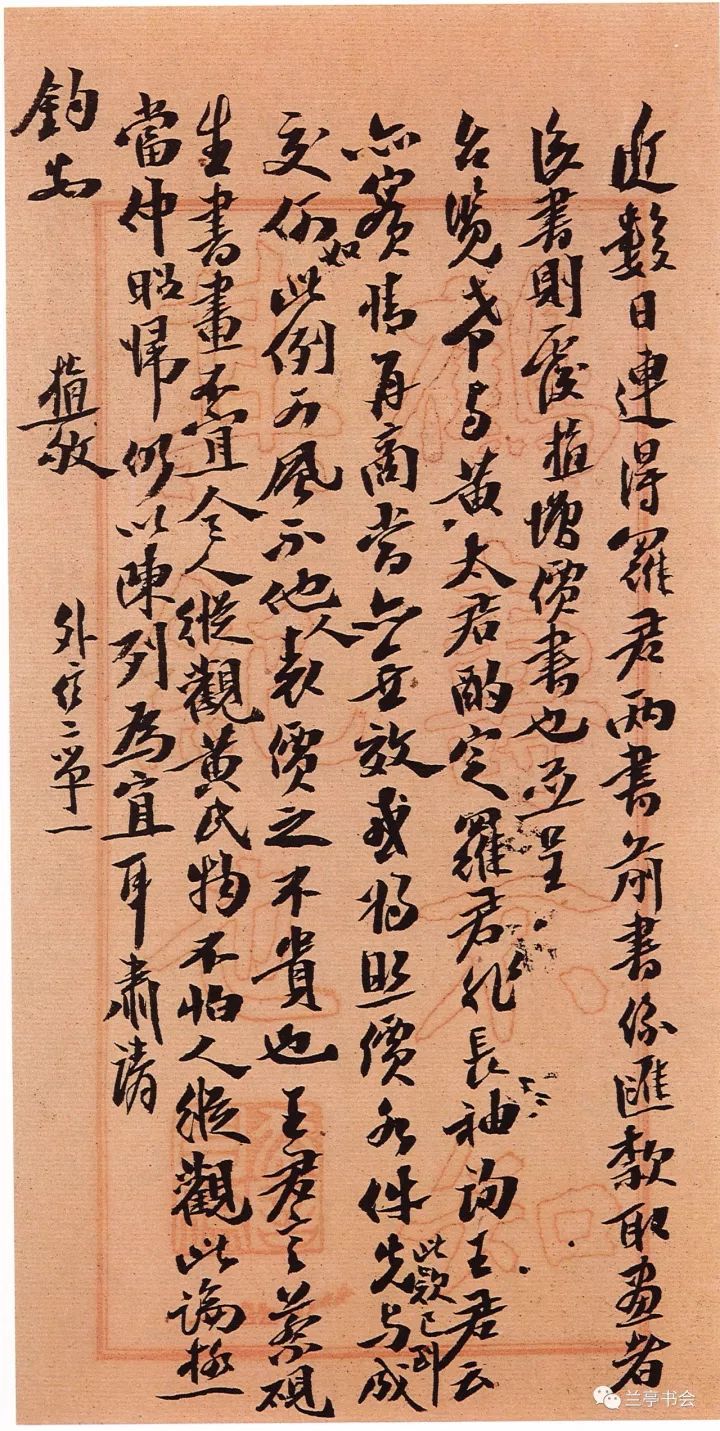 近數日連得羅君兩書前書係匯款取畫者
後書則覆植增價書也並呈
台覽希与黃太君酌定羅君非長袖詢王君云
亦窘情再商當亦無效或將照價各件先与成
此款已到
交何如此例可風示他人表價之不貴也王君言蔡硯
生書畫不宜令人縱觀黃氏物不怕人縱觀此論極
當仲昭帰仍以陳列為宜耳肅請
鈞安
植敬
外信二單一
兰亭书会